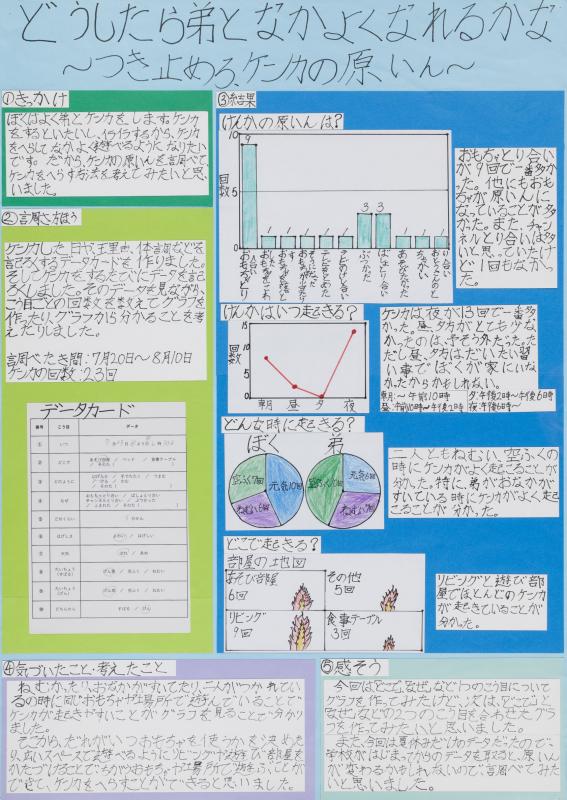 どうしたら弟となかよくなれるかな
～つき止めろ、ケンカの原いん～
①きっかけ
ぼくはよく弟とケンカをします。ケンカ
をするといたいし、イライラするから、ケンカ
をへらしてなかよく遊べるようになりたい
です。だから、ケンカの原いんを調べて、
ケンカをへらす方法を考えてみたいと思
いました。
②調さ方ほう
ケンカした日や理由、体調などを
記ろくするデータカードを作りました。そ
してケンカをするたびにデータを記
ろくしました。そのデータを見ながら、
こう目ごとの回数を数えてグラフを
作ったり、グラフから分かることを考
えたりしました。
調べたき間：7月20日～8月10日
ケンカの回数：23回
データカード
番号
こう目
データ
①
いつ
②
どこで
③
どのように
④
なぜ
⑤
⑥
はげしさ
⑦
天気
⑧
たいちょう
⑨
たいちょう
⑩
③結果
けんかの原いんは?
10
5
0
回数
9
1
1
1
1
1
3
3
1
1
1
おもちゃとり
ぶつかった
ばしょとり合い
おもちゃとり合い
が9回で一番多か
った。他にもおも
ちゃが原いんに
なっていることが多
かった。また、チャン
ネルとり合いは多
いと思っていたけ
ど1回もなかっ
た。
けんかはいつ起きる?
15
10
5
0
回数
朝 昼 夕 夜
ケンカは夜が13回で一番多
かった。昼、夕方がとても少な
かったのは、予そう外だった。た
だし昼、夕方はだいたい習
い事でぼくが家にいな
かったからかもしれない。
朝:～午前10時 夕:午後2時～午後6時
昼:午前10時～午後2時 夜:午後6時～
どんな時に起きる?
ぼく 弟
空ふく7回
元気10回
ねむい6回
空ふく12回
元気6回
ねむい5回
二人ともねむい、空ふくの
時にケンカがよく起こることが
分かった。特に、弟がおなかが
すいている時にケンカがよく起こ
ることが分かった。
どこで起きる?
部屋の地図
あそび部屋
6回
その他
5回
リビング
9回
食事テーブル
3回
リビングと遊び部
屋でほとんどのケンカ
が起きていることが
分かった。
④気づいたこと・考えたこと
ねむかったりおなかがすいてたり、二人がつかれてい
るの時に同じおもちゃや場所で遊んでいることで
ケンカが起きやすいことがグラフを見ることで分かり
ました。
だから、だれがいつおもちゃを使うかを決めた
り、広いスペースで遊べるようにリビングや遊び部屋を
かたづけることで、ちがうおもちゃや場所で遊ぶことが
できて、ケンカをへらすことができると思いました。
⑤感そう
今回は「どこで」、「なぜ」など1つのこう目について
グラフを作ってみたけど、次は、「どこで」と
「なぜ」などの2つのこう目を合わせたグラ
フを作ってみたいと思いました。
また、今回は夏休みだけのデータだったので、
学校がはじまってからのデータを取ると、原いん
が変わるかもしれないので、調べてみた
いと思いました。